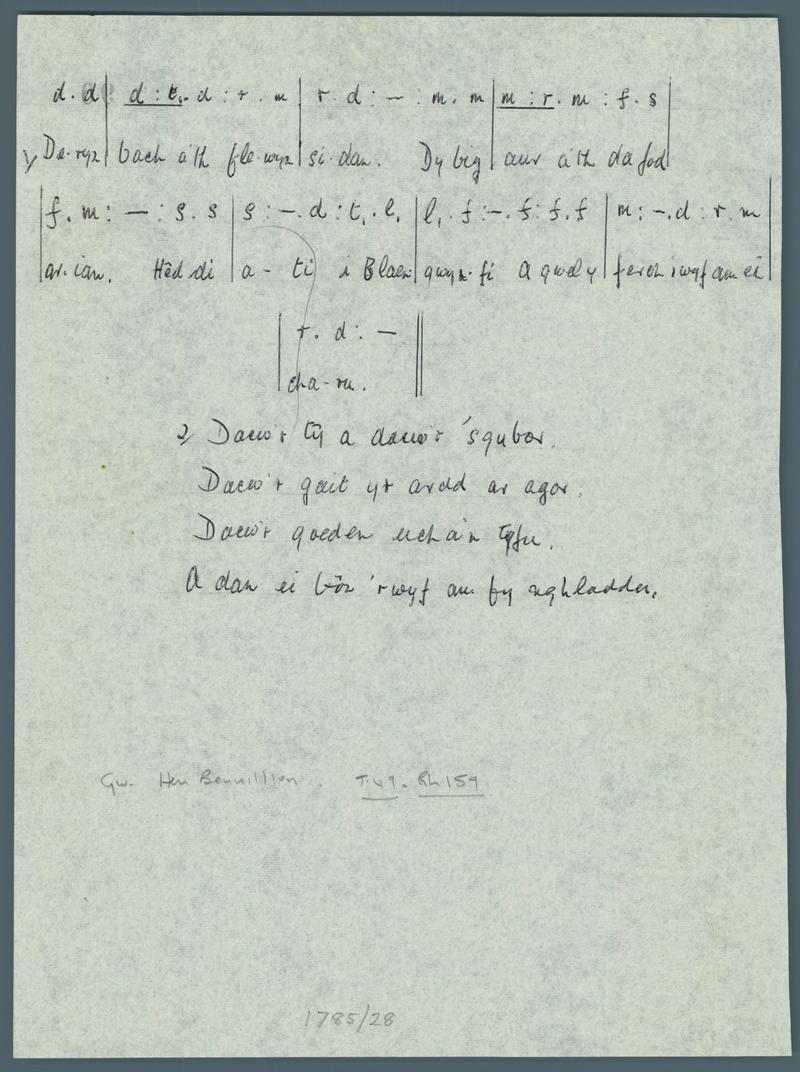 d . d | d : t₁ . d : r . m | r . d : — : m . m | m : r . m : f . s |
1/ De-ryn | bach a'th fle-wyn | si-dan. Dy big | aur a'th dafod |
| f . m : — : s . s | s : — . d : t₁ . l₁ | l₁ . f : — . f : f . f | m : — . d : r . m |
| ar-ian. Hêd di | a - ti i Blaen | gwyn-fi A gwel y | ferch rwyf am ei |
| r . d : — ||
cha-ru.
2/ Dacw'r tŷ a dacw'r 'sgubor.
Dacw'r gait yr ardd ar agor.
Dacw'r goeden ucha'n tyfu.
A dan ei bôn 'rwyf am fy nghladdu.
Gw. Hen Benillion. T.49. Rh 159
1785/28